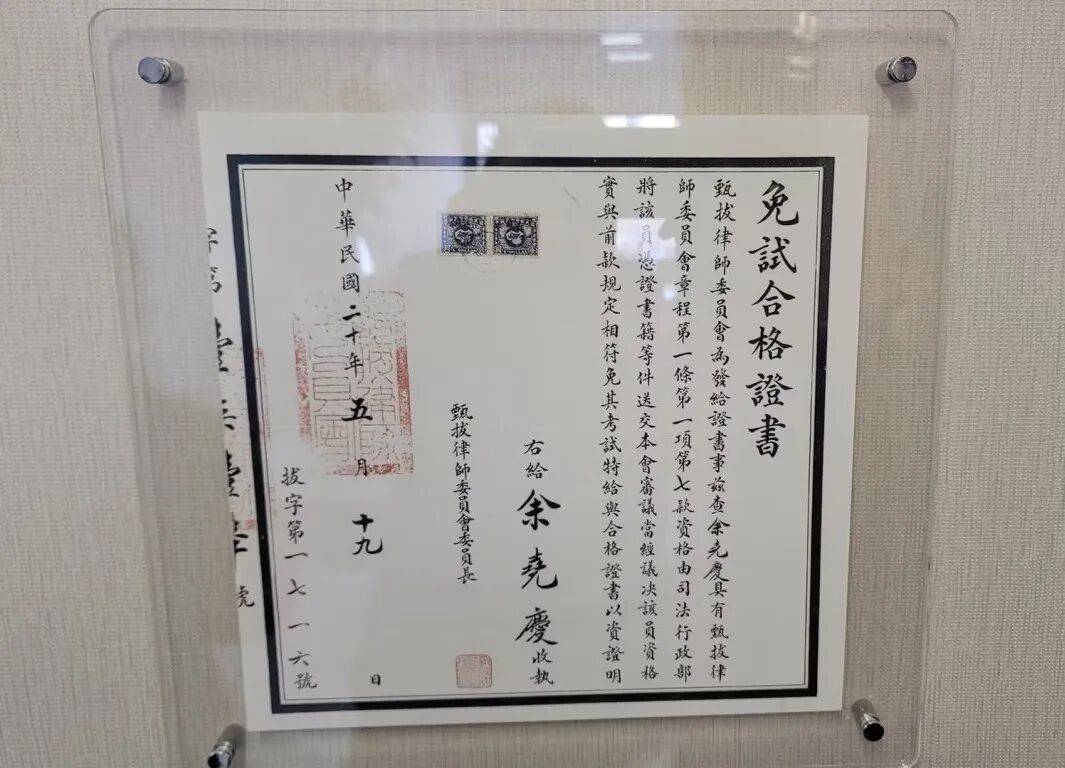 免試合格證書
甄拔律師委員會為發給證書事茲查余堯慶具有甄拔律
師委員會章程第一條第一項第七款資格由司法行政部
將該員憑證書籍等件送交本會審議當經議决該員資格
實與前款規定相符免其考試特給與合格證書以資證明
右給余堯慶收執
甄拔律師委員會委員長
中華民國二十年五月十九日
拔字第一七一一六號
字第
號